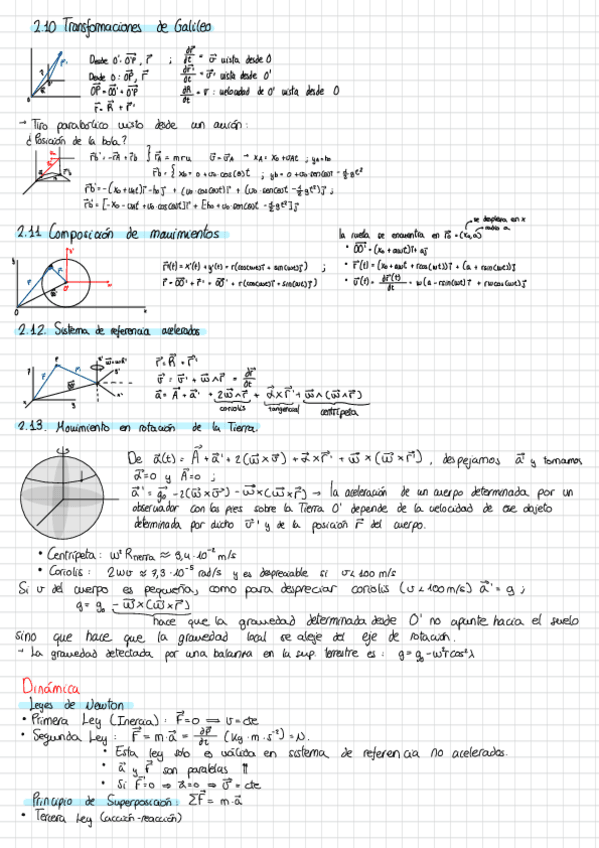 2.10 Transformaciones de Galileo
Desde O': O'P⃗, r⃗' ; dr⃗/dt = v⃗ vista desde O
Desde O: OP⃗, r⃗ dr⃗'/dt = v⃗' vista desde O'
OP⃗ = OO'⃗ + O'P⃗ dR⃗/dt = v : velocidad de O' vista desde O
r⃗ = R⃗ + r⃗'
→ Tiro parabólico visto desde un avión:
¿Posición de la bola?
r⃗b' = -r⃗A + r⃗b } r⃗A = mru v⃗ = v⃗A → xA = x₀ + vAt ; yA = h₀
r⃗b = { xb = 0 + v₀ cos(α)t ; yb = 0 + v₀ senαt - ½gt²
r⃗b' = -(x₀ + vAt)i⃗ - h₀j⃗ + (v₀ cosαt)i⃗ + (v₀ senαt - ½gt²)j⃗ ;
2.11 Composición de movimientos
la rueda se encuentra en r⃗₀ = (x₀, a) se desplaza en x radio a
r⃗'(t) = x'(t) + y'(t) = r(cos(ωt)i⃗ + sin(ωt)j⃗) ;
r⃗ = OO'⃗ + r⃗' = OO'⃗ + r(cos(ωt)i⃗ + sin(ωt)j⃗)
• OO'⃗ = (x₀ + aωt)i⃗ + aj⃗
• r⃗(t) = (x₀ + aωt + rcos(ωt))i⃗ + (a + rsin(ωt))j⃗
• v⃗(t) = dr⃗(t)/dt = ω(a - rsin(ωt)i⃗ + rωcos(ωt)j⃗)
2.12. Sistema de referencia acelerados
r⃗ = R⃗ + r⃗'
v⃗ = v⃗' + ω⃗∧r⃗ = dr⃗/dt
a⃗ = A⃗ + a⃗' + 2ω⃗∧v⃗ + α⃗×r⃗' + ω⃗∧(ω⃗∧r⃗)
coriolis tangencial centrípeta
2.13. Movimiento en rotación de la Tierra.
De a⃗(t) = A⃗ + a⃗' + 2(ω⃗×v⃗) + α⃗×r⃗' + ω⃗×(ω⃗×r⃗), despejamos a⃗' y tomamos
α⃗=0 y A⃗=0 ;
a⃗' = g⃗₀ - 2(ω⃗×v⃗') - ω⃗×(ω⃗×r⃗) → la aceleración de un cuerpo determinada por un
observador con los pies sobre la Tierra O' depende de la velocidad de ese objeto
determinada por dicho v⃗' y de la posición r⃗ del cuerpo.
• Centrípeta: ω² RTierra ≈ 3,4·10⁻² m/s
• Coriolis: 2ωv ≈ 7,3·10⁻⁵ rad/s y es despreciable si v<100 m/s
Si v del cuerpo es pequeña, como para despreciar coriolis (v<100m/s) a⃗' = g ;
g = g₀ - ω⃗×(ω⃗×r⃗)
hace que la gravedad determinada desde O' no apunte hacia el suelo
sino que hace que la gravedad local se aleje del eje de rotación.
→ La gravedad detectada por una balanza en la sup. terrestre es: g = g₀ - ω²r cos²λ
Dinámica
Leyes de Newton
• Primera Ley (Inercia): F⃗=0 ⟹ v = cte
• Segunda Ley: F⃗ = m·a⃗ = dp⃗/dt (kg·m·s⁻²) = N.
• Esta ley solo es válida en sistema de referencia no acelerados.
• a⃗ y F⃗ son paralelas ⇈
• Si F⃗=0 ⟹ a⃗=0 ⟹ v⃗ = cte
Principio de Superposición: ΣF⃗ = m·a⃗
• Tercera Ley (acción-reacción)